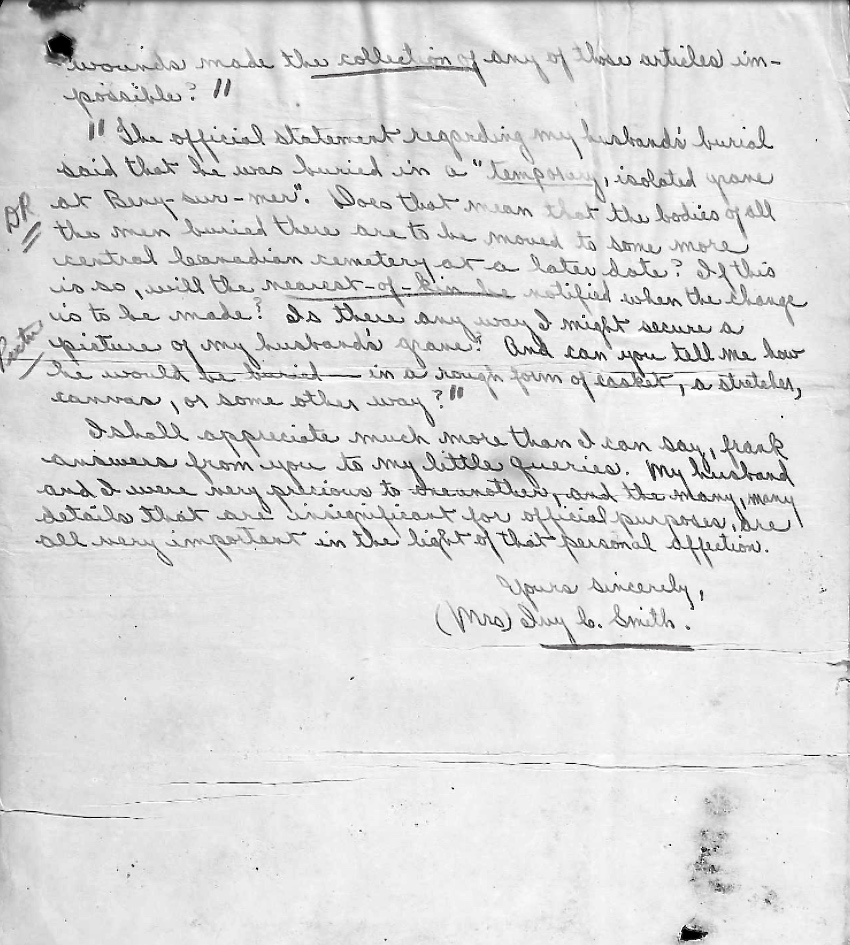 wounds made the collection of any of those articles im-
possible? "
" The official statement regarding my husband's burial
said that he was buried in a "temporary, isolated grave
at Beny-sur-mer". Does that mean that the bodies of all
DR
the men buried there are to be moved to some more
central Canadian cemetery at a later date? If this
is so, will the nearest-of-kin be notified when the change
is to be made? Is there any way I might secure a
picture of my husband's grave? And can you tell me how
he would be buried — in a rough form of casket, a stretcher,
canvas, or some other way? "
I shall appreciate much more than I can say, frank
answers from you to my little queries. My husband
and I were very precious to oneanother, and the many, many
details that are insignificant for official purposes, are
all very important in the light of that personal affection.
Yours sincerely,
(Mrs) Ivy C. Smith.